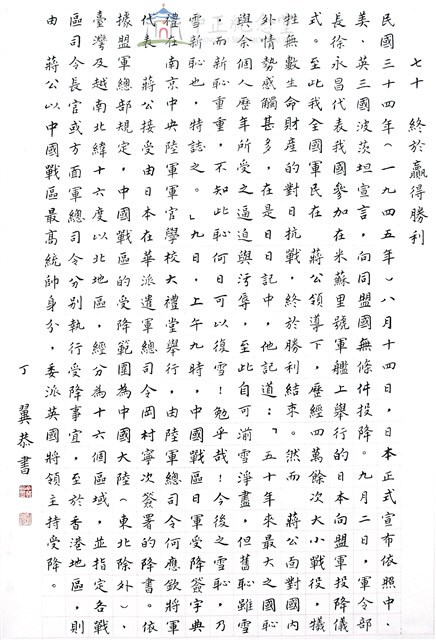 七十　終於贏得勝利
民國三十四年（一九四五年）八月十四日，日本正式宣布依照中、
美、英三國波茨坦宣言，向同盟國無條件投降。九月二日，軍令部
長徐永昌代表我國參加在米蘇里號軍艦上舉行的日本向盟軍投降儀
式。至此我全國軍民在　蔣公領導下，歷經四萬餘次大小戰役，犧
牲無數生命財產的對日抗戰，終於勝利結束。然而　蔣公面對國內
外情勢感觸甚多，在是日日記中，他記道：「五十年來最大之國恥
與余個人歷年所受之逼迫與污辱，至此自可湔雪淨盡，但舊恥雖雪
，而新恥重重，不知此恥何日可以復雪！勉乎哉！今後之雪恥，乃
雪新恥也，特誌之。」九日，上午九時，中國戰區日軍受降簽字典
禮在南京中央陸軍軍官學校大禮堂舉行，由陸軍總司令何應欽將軍
代表　蔣公接受由日本在華派遣軍總司令岡村寧次簽署的降書。依
據盟軍總部規定，中國戰區的受降範圍為中國大陸（東北除外）、
臺灣及越南北緯十六度以北地區，經分為十六個區域，並指定各戰
區司令長官或方面軍總司令分別執行受降事宜，至於香港地區，則
由　蔣公以中國戰區最高統帥身分，委派英國將領主持受降。
丁　翼恭書